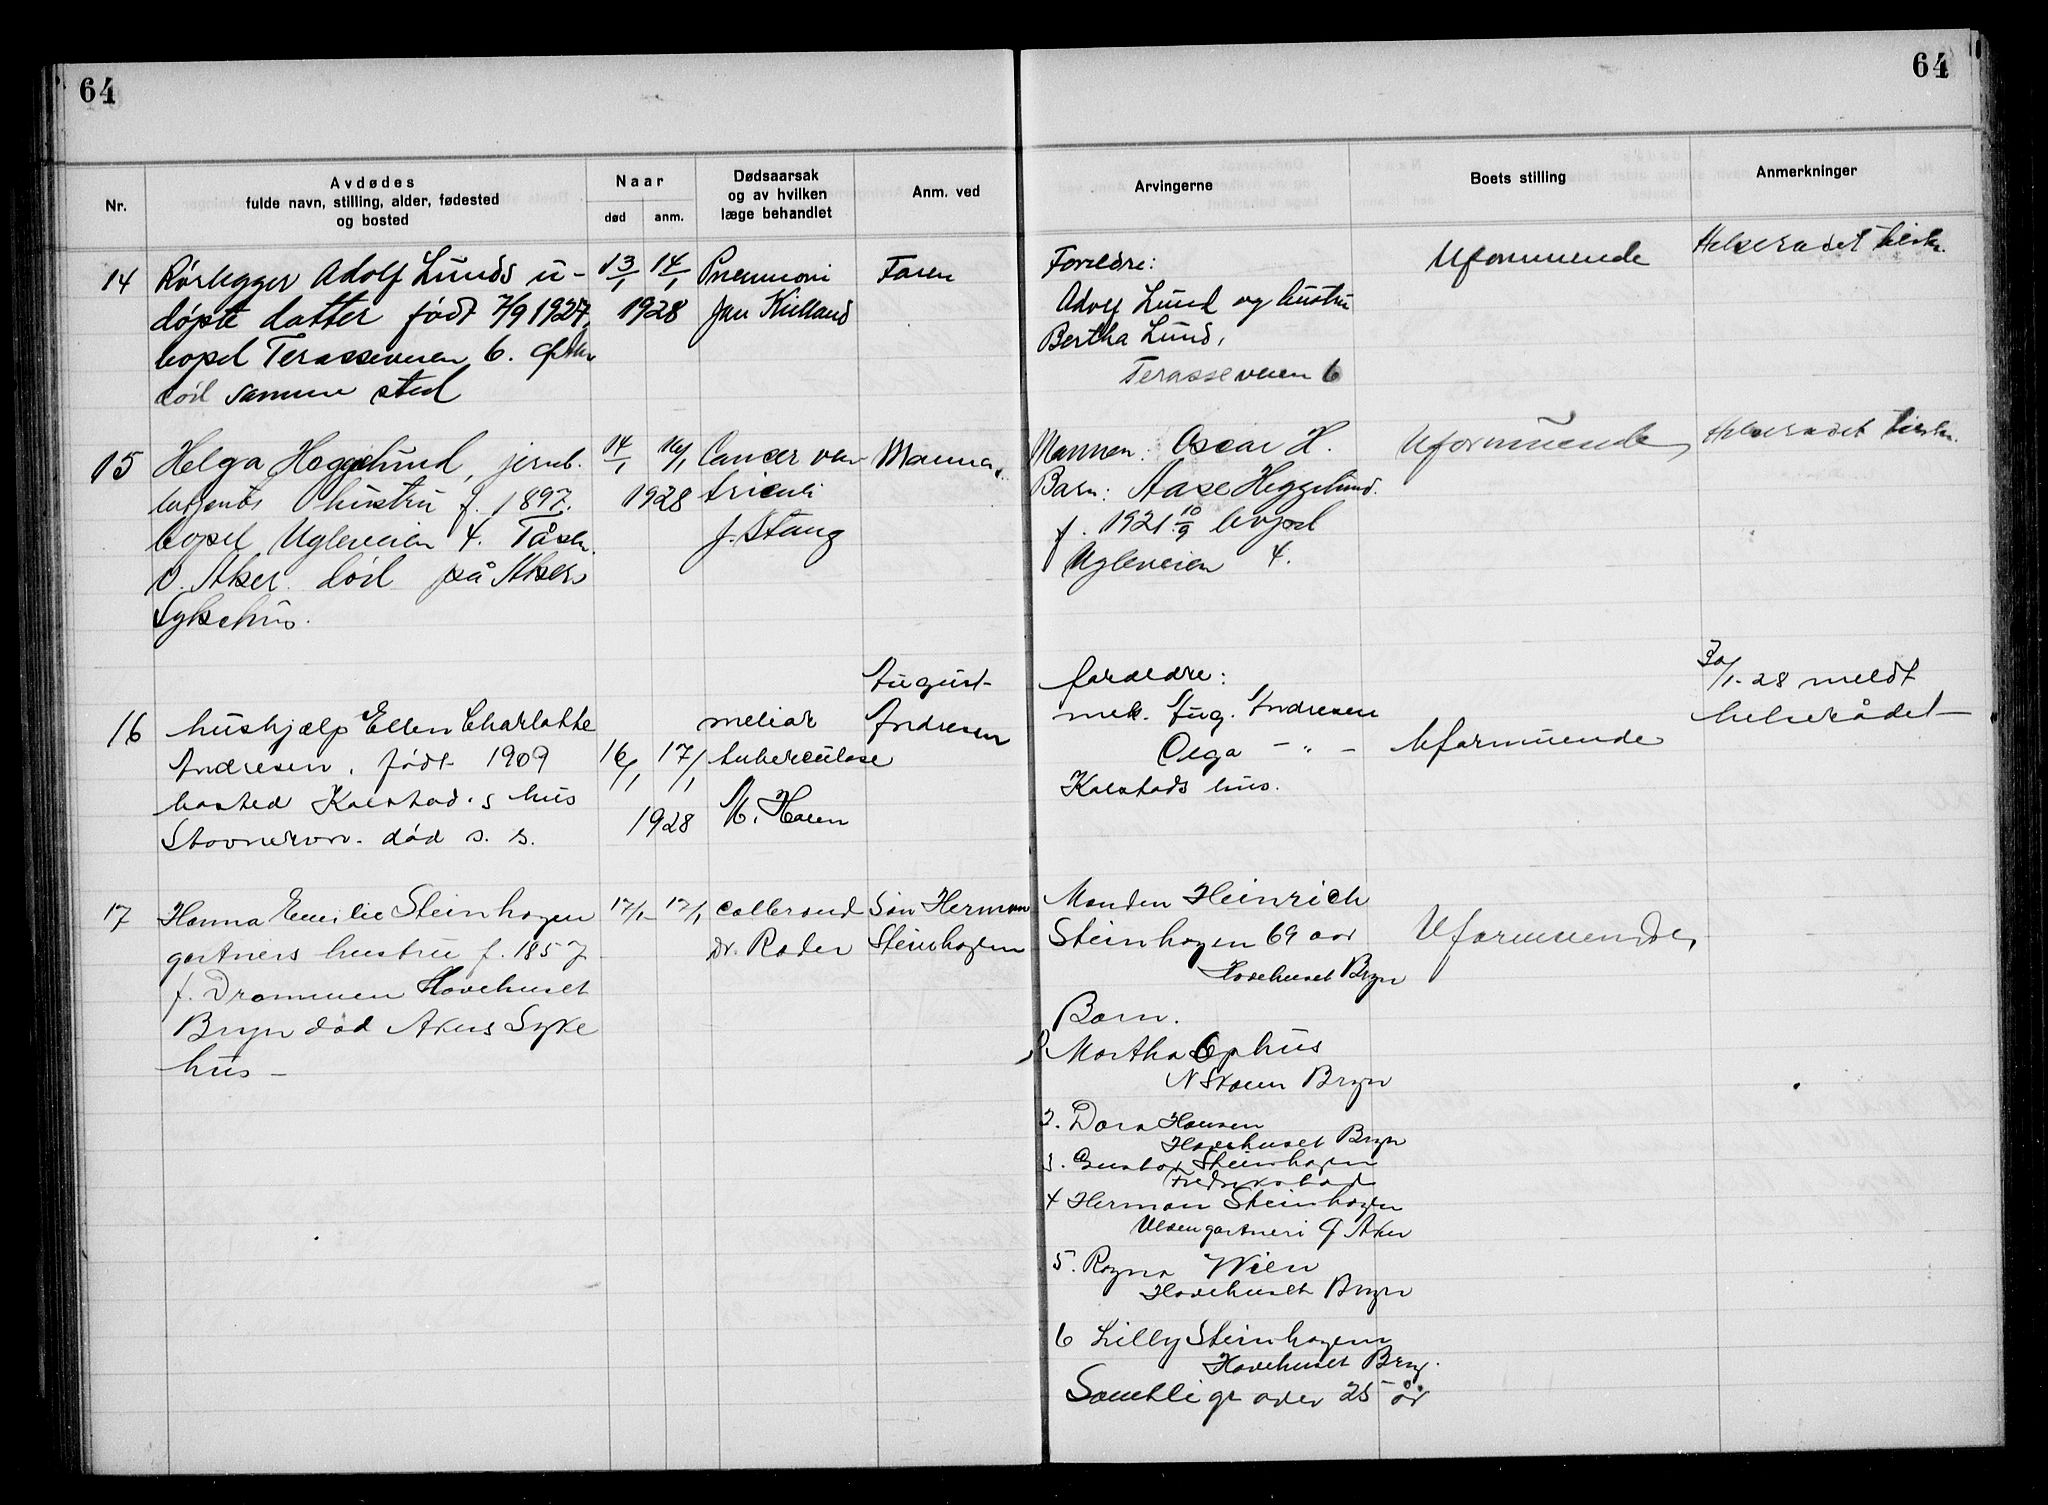 64
64
Nr.
Avdødes
fulde navn, stilling, alder, fødested
og bosted
Naar
død
anm.
Dødsaarsak
og av hvilken
læge behandlet
Anm. ved
Arvingerne
Boets stilling
Anmerkninger
14
Rørlegger Adolf Lunds u-
døpte datter født 7/9 1927,
bopel Terasseveien 6.
død samme sted
13/1
14/1
1928
Pneumoni
Jan Kielland
Faren
Foreldre:
Adolf Lund og hustru
Bertha Lund,
Terasseveien 6
Uformuende
Helserådet
15
Helga Heggelund, jernb.
hustru f. 1897.
bopel Ugleveien 4. Tåsen
V. Aker. død på Aker
Sykehus.
14/1
16/1
1928
Cancer ven
triculi
J. Stang
Mannen
Mannen: Oscar H.
Barn: Aase Heggelund.
f. 1921 10/9 bopel
Ugleveien 4.
Uformuende
Helserådet
16
hushjælp Ellen Charlotte
Andresen. født 1909
bosted Kalstad.s hus
Stovnervn. død s. s.
16/1
17/1
1928
meliar
tuberculose
M. Haren
August
Andresen
foreldre:
mek. Aug. Andresen
Olga - " -
Kalstads hus.
Uformuende
30/1-28 meldt
helserådet
17
Hanna Emilie Steinhagen
gartners hustru f. 1857
f. Drammen Havehuset
Bryn død Akers Syke
hus -
17/1
17/1
Dr. Roder
Søn Herman
Steinhagen
Manden Heinrich
Steinhagen 69 aar
Havehuset Bryn
Uformuende
Barn.
Martha Ophus
N Skøien Bryn
2. Dora Hansen
Havehuset Bryn
3. Gustav Steinhagen
Fredrikstad
4 Herman Steinhagen
gartneri Ø Aker
5. Ragna Wien
Havehuset Bryn
6 Lilly Steinhagen
Havehuset Bryn.
Samtlige over 25 år